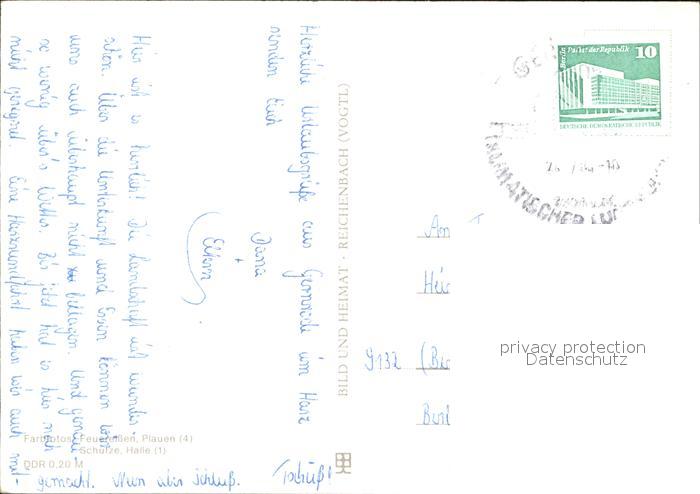 Herzliche Urlaubsgrüße aus Gernrode im Harz
senden Euch
Dana
+
Eltern
Hier ist es herrlich! Die Landschaft ist wunder-
schön. Über die Unterkunft und Essen können wir
uns auch überhaupt nicht beklagen. Und genau-
so wenig über's Wetter. Bis jetzt hat es hier noch
nicht geregnet. Eine Harzrundfahrt haben wir auch mit-
gemacht. Nun aber Schluß. Tschüß!
BILD UND HEIMAT · REICHENBACH (VOGTL)
Farbfotos: Feuereißen, Plauen (4)
Schütze, Halle (1)
DDR 0,20 M
Berlin, Palast der Republik
10
DEUTSCHE DEMOKRATISCHE REPUBLIK
KLIMATISCHER
An
9132
privacy protection
Datenschutz